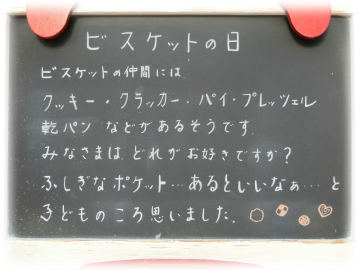 ビスケットの日
ビスケットの仲間には
クッキー・クラッカー・パイ・プレッツェル
乾パン などがあるそうです.
みなさまは どれがお好きですか?
ふしぎなポケット…あるといいなぁ…と
子どものころ思いました.